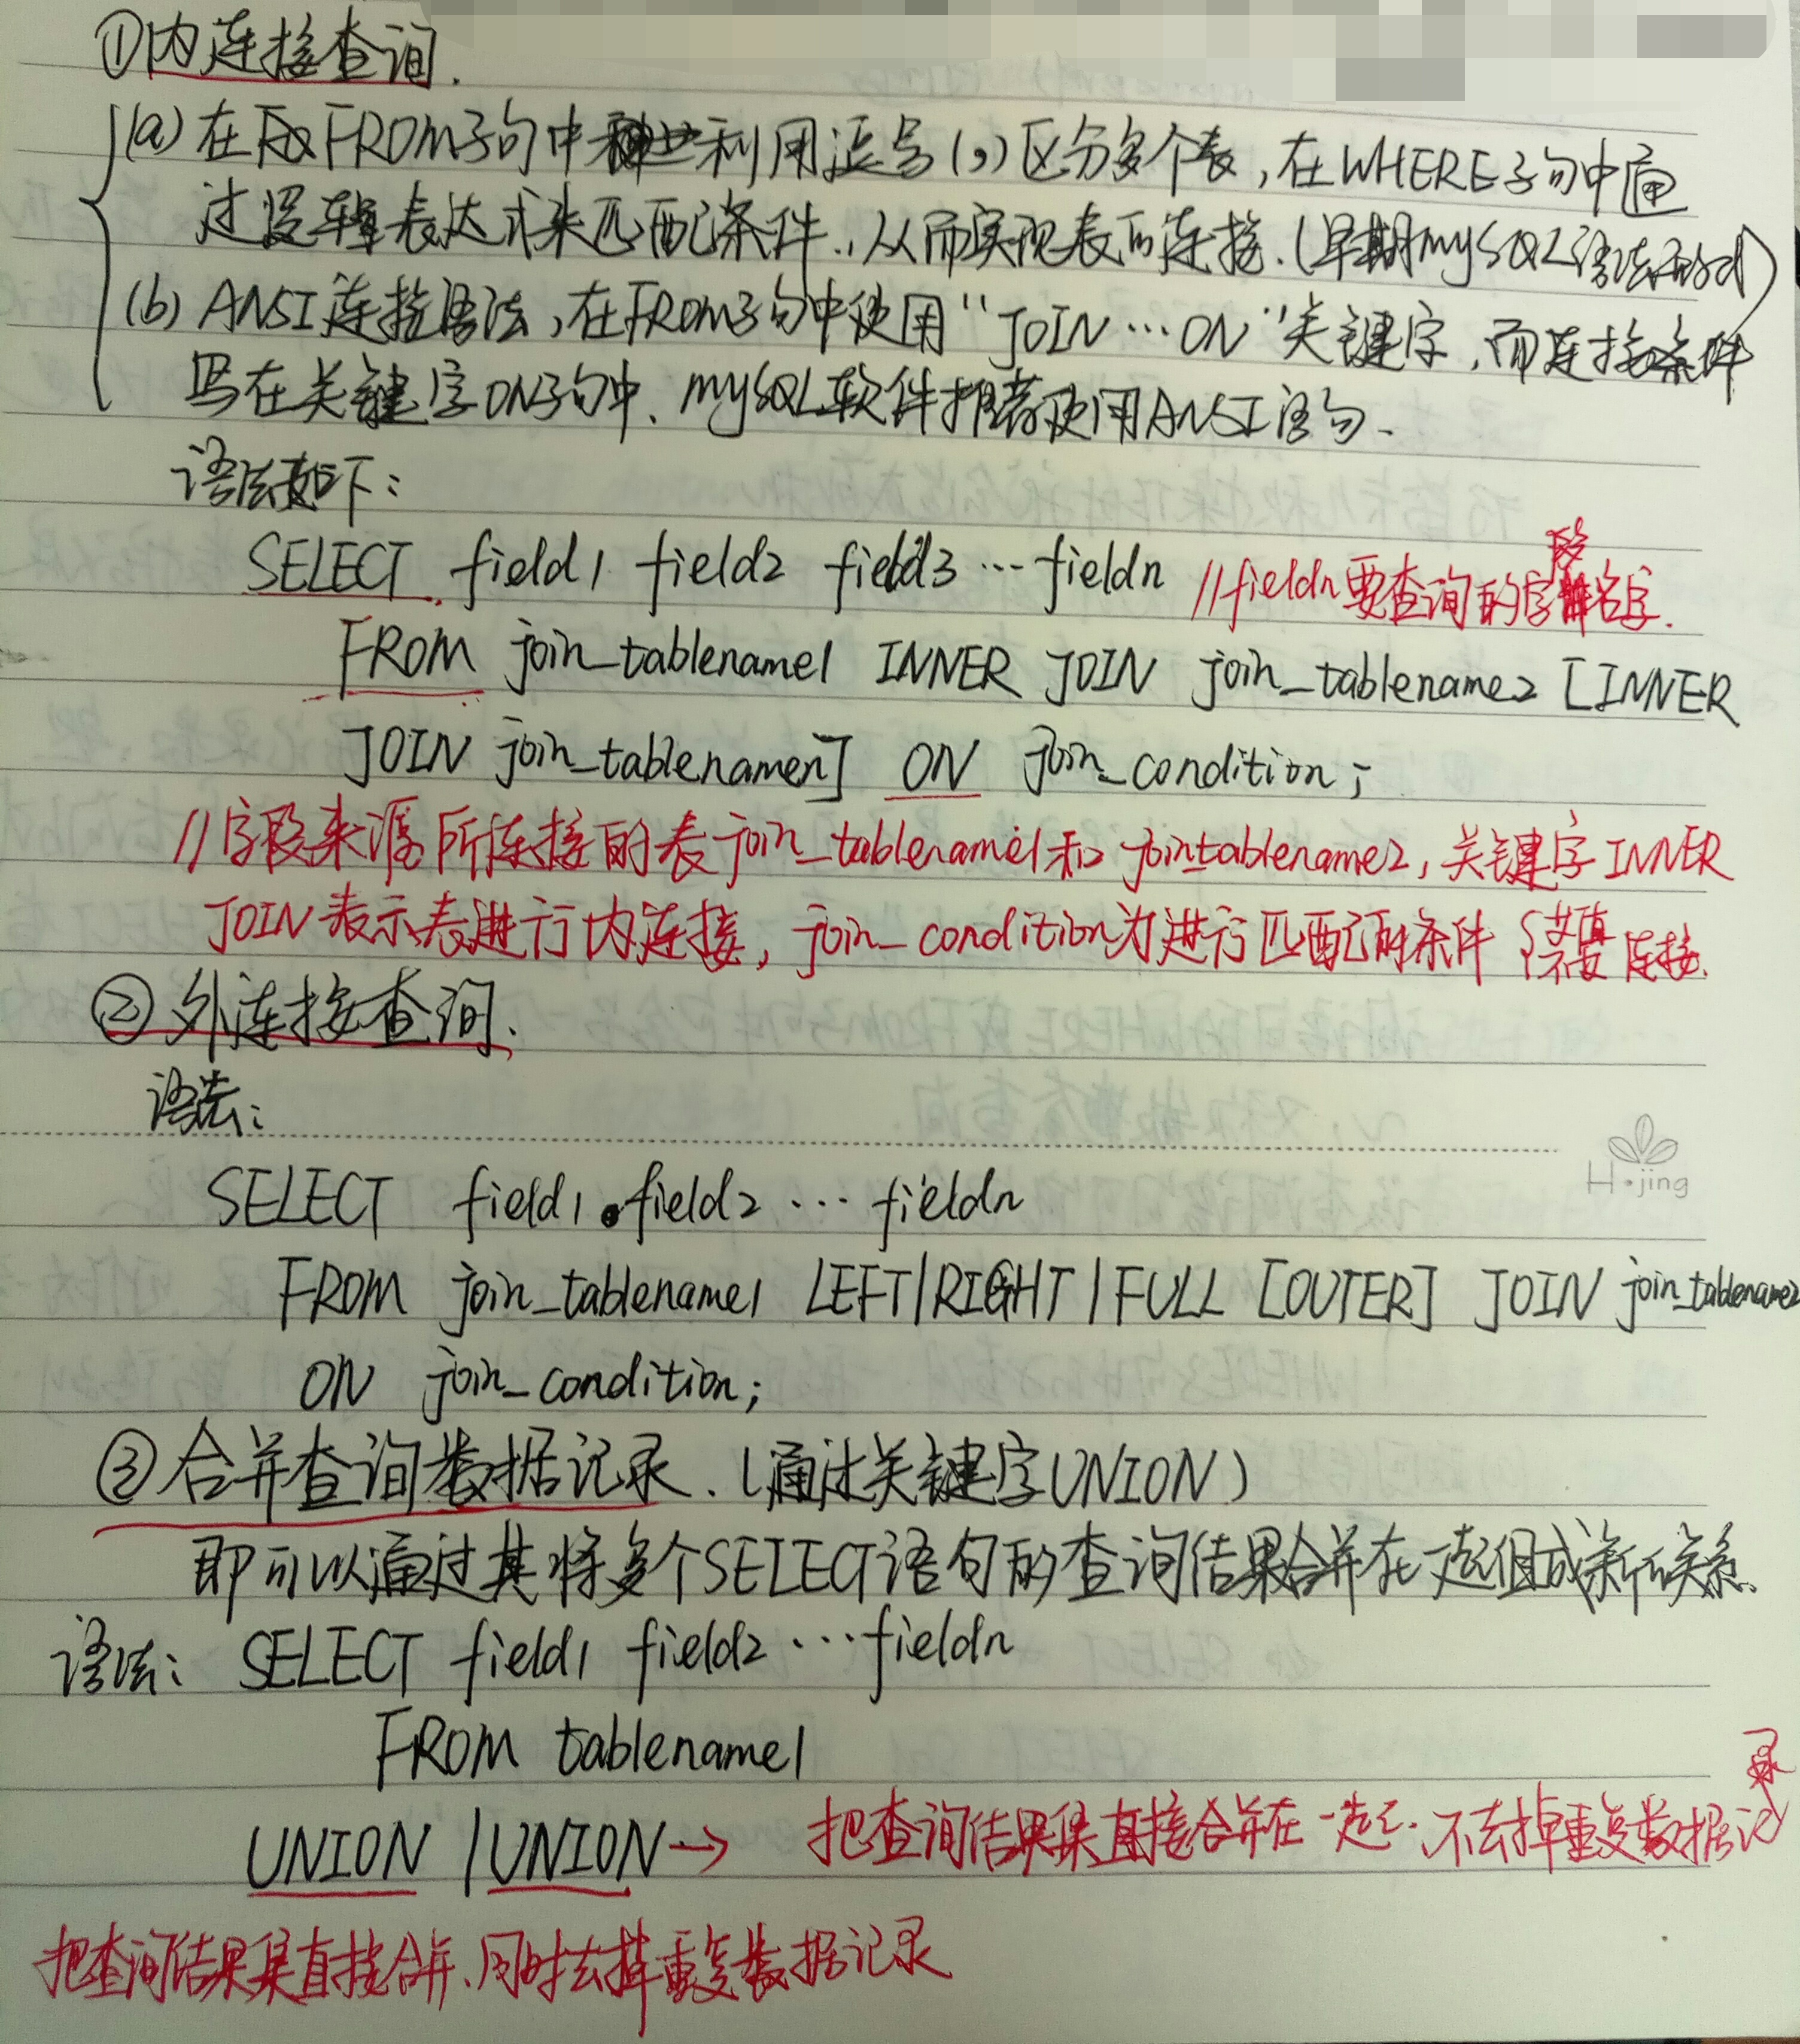 ①内连接查询.
(a) 在FROM子句中利用逗号(,)区分多个表,在WHERE子句中通
过逻辑表达式来匹配条件.,从而实现表的连接.(早期mySQL语法形式)
(b) ANSI连接语法,在FROM子句中使用"JOIN…ON"关键字,而连接条件
写在关键字ON子句中、mySQL软件推荐使用ANSI语句、
语法如下:
SELECT field1 field2 field3 … fieldn //fieldn要查询的字段名字.
FROM join_tablename1 INNER JOIN join_tablename2 [INNER
JOIN join_tablenamen] ON join_condition;
//字段来源所连接的表join_tablename1和jointablename2,关键字INNER
JOIN表示表进行内连接,join_condition为进行匹配的条件{等值 不等 连接.
②外连接查询.
语法:
SELECT field1 field2 … fieldn
FROM join_tablename1 LEFT|RIGHT|FULL [OUTER] JOIN join_tablename2
ON join_condition;
H·jing
③合并查询数据记录.(通过关键字UNION)
即可以通过其将多个SELECT语句的查询结果合并在一起组成新的关系、
语法: SELECT field1 field2 …fieldn
FROM tablename1
UNION |UNION→ 把查询结果集直接合并在一起.不去掉重复数据记录
把查询结果集直接合并、同时去掉重复数据记录